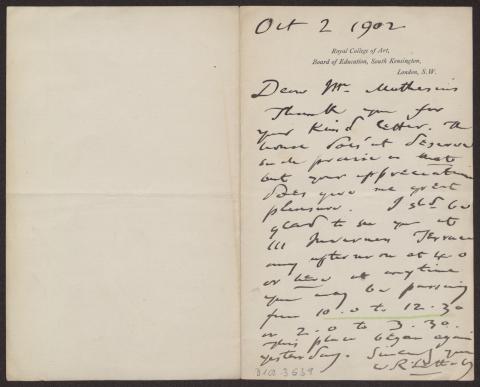 Oct 2 1902
Royal College of Art,
Board of Education, South Kensington,
London, S.W.
Dear Mr. Muthesius
Thank you for
your kind letter. The
house does't deserve
such praise as that
but your appreciation
does give me great
pleasure. I shd be
glad to see you at
111 Inverness Terrace
any afternoon at 4.0
or here at anytime
you may be passing
from 10.0 to 12.30
or 2.0 to 3.30.
This place began again
yesterday. Sincerely yours
W R Lethaby